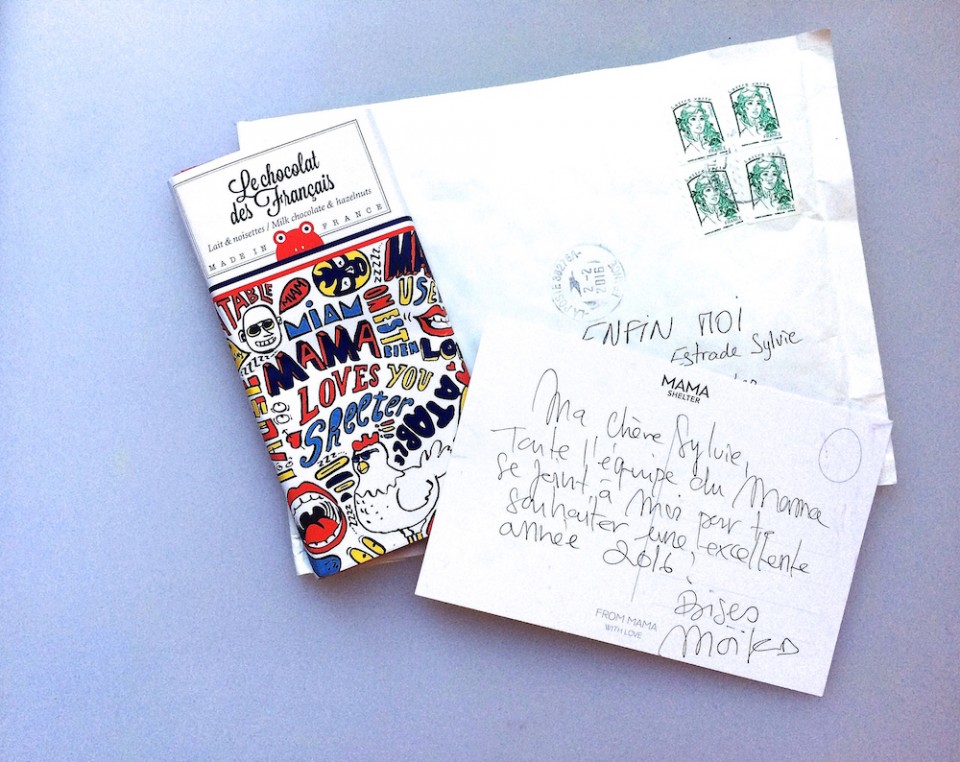 Le chocolat
des Français
Lait & noisettes / Milk chocolate & hazelnuts
MADE IN FRANCE
TABLE
MIAM
ZZZZ
MA
MIAM
ON EST BIEN
USE
MAMA
LO
LOVES YOU
Shelter
ATABLE
ZZZ
2-2
2016
ENFIN MOI
Estrade Sylvie
MAMA
SHELTER
Ma chère Sylvie,
Toute l'équipe du Mama
se joint à moi pour te
souhaiter une excellente
année 2016!
Bises
FROM MAMA
WITH LOVE